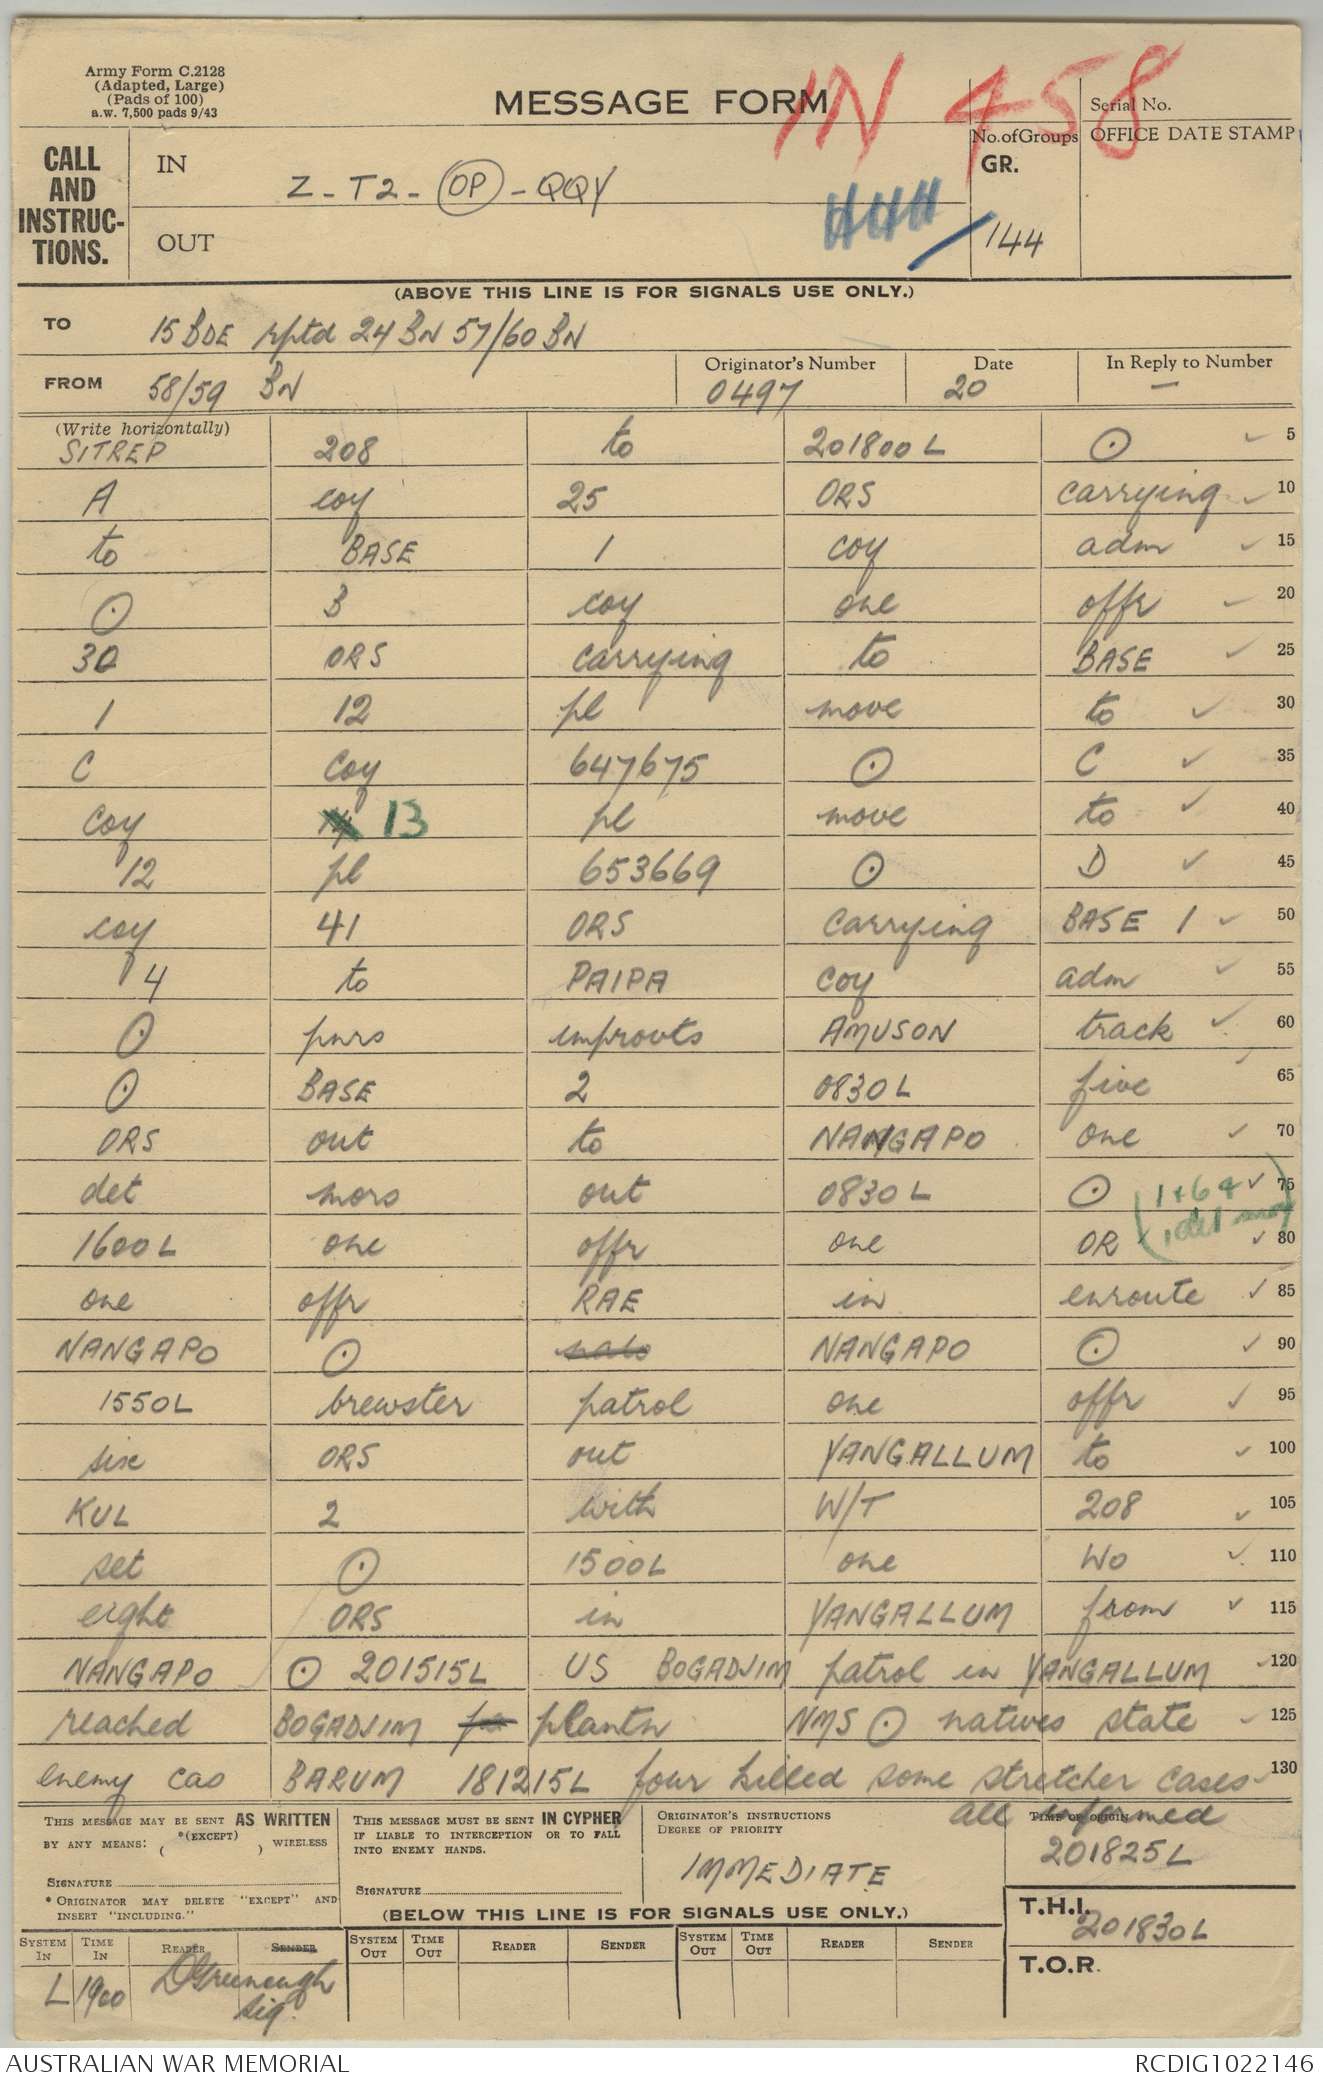 Army Form C.2128
(Adapted, Large)
(Pads of 100)
a.w. 7,500 pads 9/43
MESSAGE FORM
IN 458
Serial No.
No. of Groups
GR.
144
OFFICE DATE STAMP
CALL
AND
INSTRUC-
TIONS.
IN
Z - T2 - OP - QQY
OUT
(ABOVE THIS LINE IS FOR SIGNALS USE ONLY.)
TO 15 BDE rptd 24 BN 57/60 BN
FROM 58/59 BN
Originator's Number 0497
Date 20
In Reply to Number —
(Write horizontally)
SITREP 208 to 201800L ⊙ ✓ 5
A coy 25 ORS carrying ✓ 10
to BASE 1 coy adm ✓ 15
⊙ B coy one offr ✓ 20
30 ORS carrying to BASE ✓ 25
1 12 pl move to ✓ 30
C coy 647675 ⊙ C ✓ 35
coy 13 pl move to ✓ 40
12 pl 653669 ⊙ D ✓ 45
coy 41 ORS carrying BASE 1 ✓ 50
4 to PAIPA coy adm ✓ 55
⊙ pnrs improvts AMUSON track ✓ 60
⊙ BASE 2 0830L five ✓ 65
ORS out to NANGAPO one ✓ 70
det mors out 0830L ⊙ ✓ 75
(1+6+ ✓
1 det mor)
1600L one offr one OR ✓ 80
one offr RAE in enroute ✓ 85
NANGAPO ⊙ NANGAPO ⊙ ✓ 90
1550L brewster patrol one offr ✓ 95
six ORS out YANGALLUM to ✓ 100
KUL 2 with W/T 208 ✓ 105
set ⊙ 1500L one WO ✓ 110
eight ORS in YANGALLUM from ✓ 115
NANGAPO ⊙ 201515L US BOGADJIM patrol in YANGALLUM ✓ 120
reached BOGADJIM plantn NMS ⊙ natives state ✓ 125
enemy cas BARUM 181215L four killed some stretcher cases ✓ 130
all informed
THIS MESSAGE MAY BE SENT AS WRITTEN
BY ANY MEANS: *(EXCEPT) ( ) WIRELESS
SIGNATURE
* ORIGINATOR MAY DELETE "EXCEPT" AND
INSERT "INCLUDING."
THIS MESSAGE MUST BE SENT IN CYPHER
IF LIABLE TO INTERCEPTION OR TO FALL
INTO ENEMY HANDS.
SIGNATURE
ORIGINATOR'S INSTRUCTIONS
DEGREE OF PRIORITY
IMMEDIATE
TIME OF ORIGIN
201825L
(BELOW THIS LINE IS FOR SIGNALS USE ONLY.)
T.H.I. 201830L
T.O.R.
SYSTEM IN TIME IN READER SENDER SYSTEM OUT TIME OUT READER SENDER SYSTEM OUT TIME OUT READER SENDER
L 1900 DGreenough
sig.
AUSTRALIAN WAR MEMORIAL
RCDIG1022146